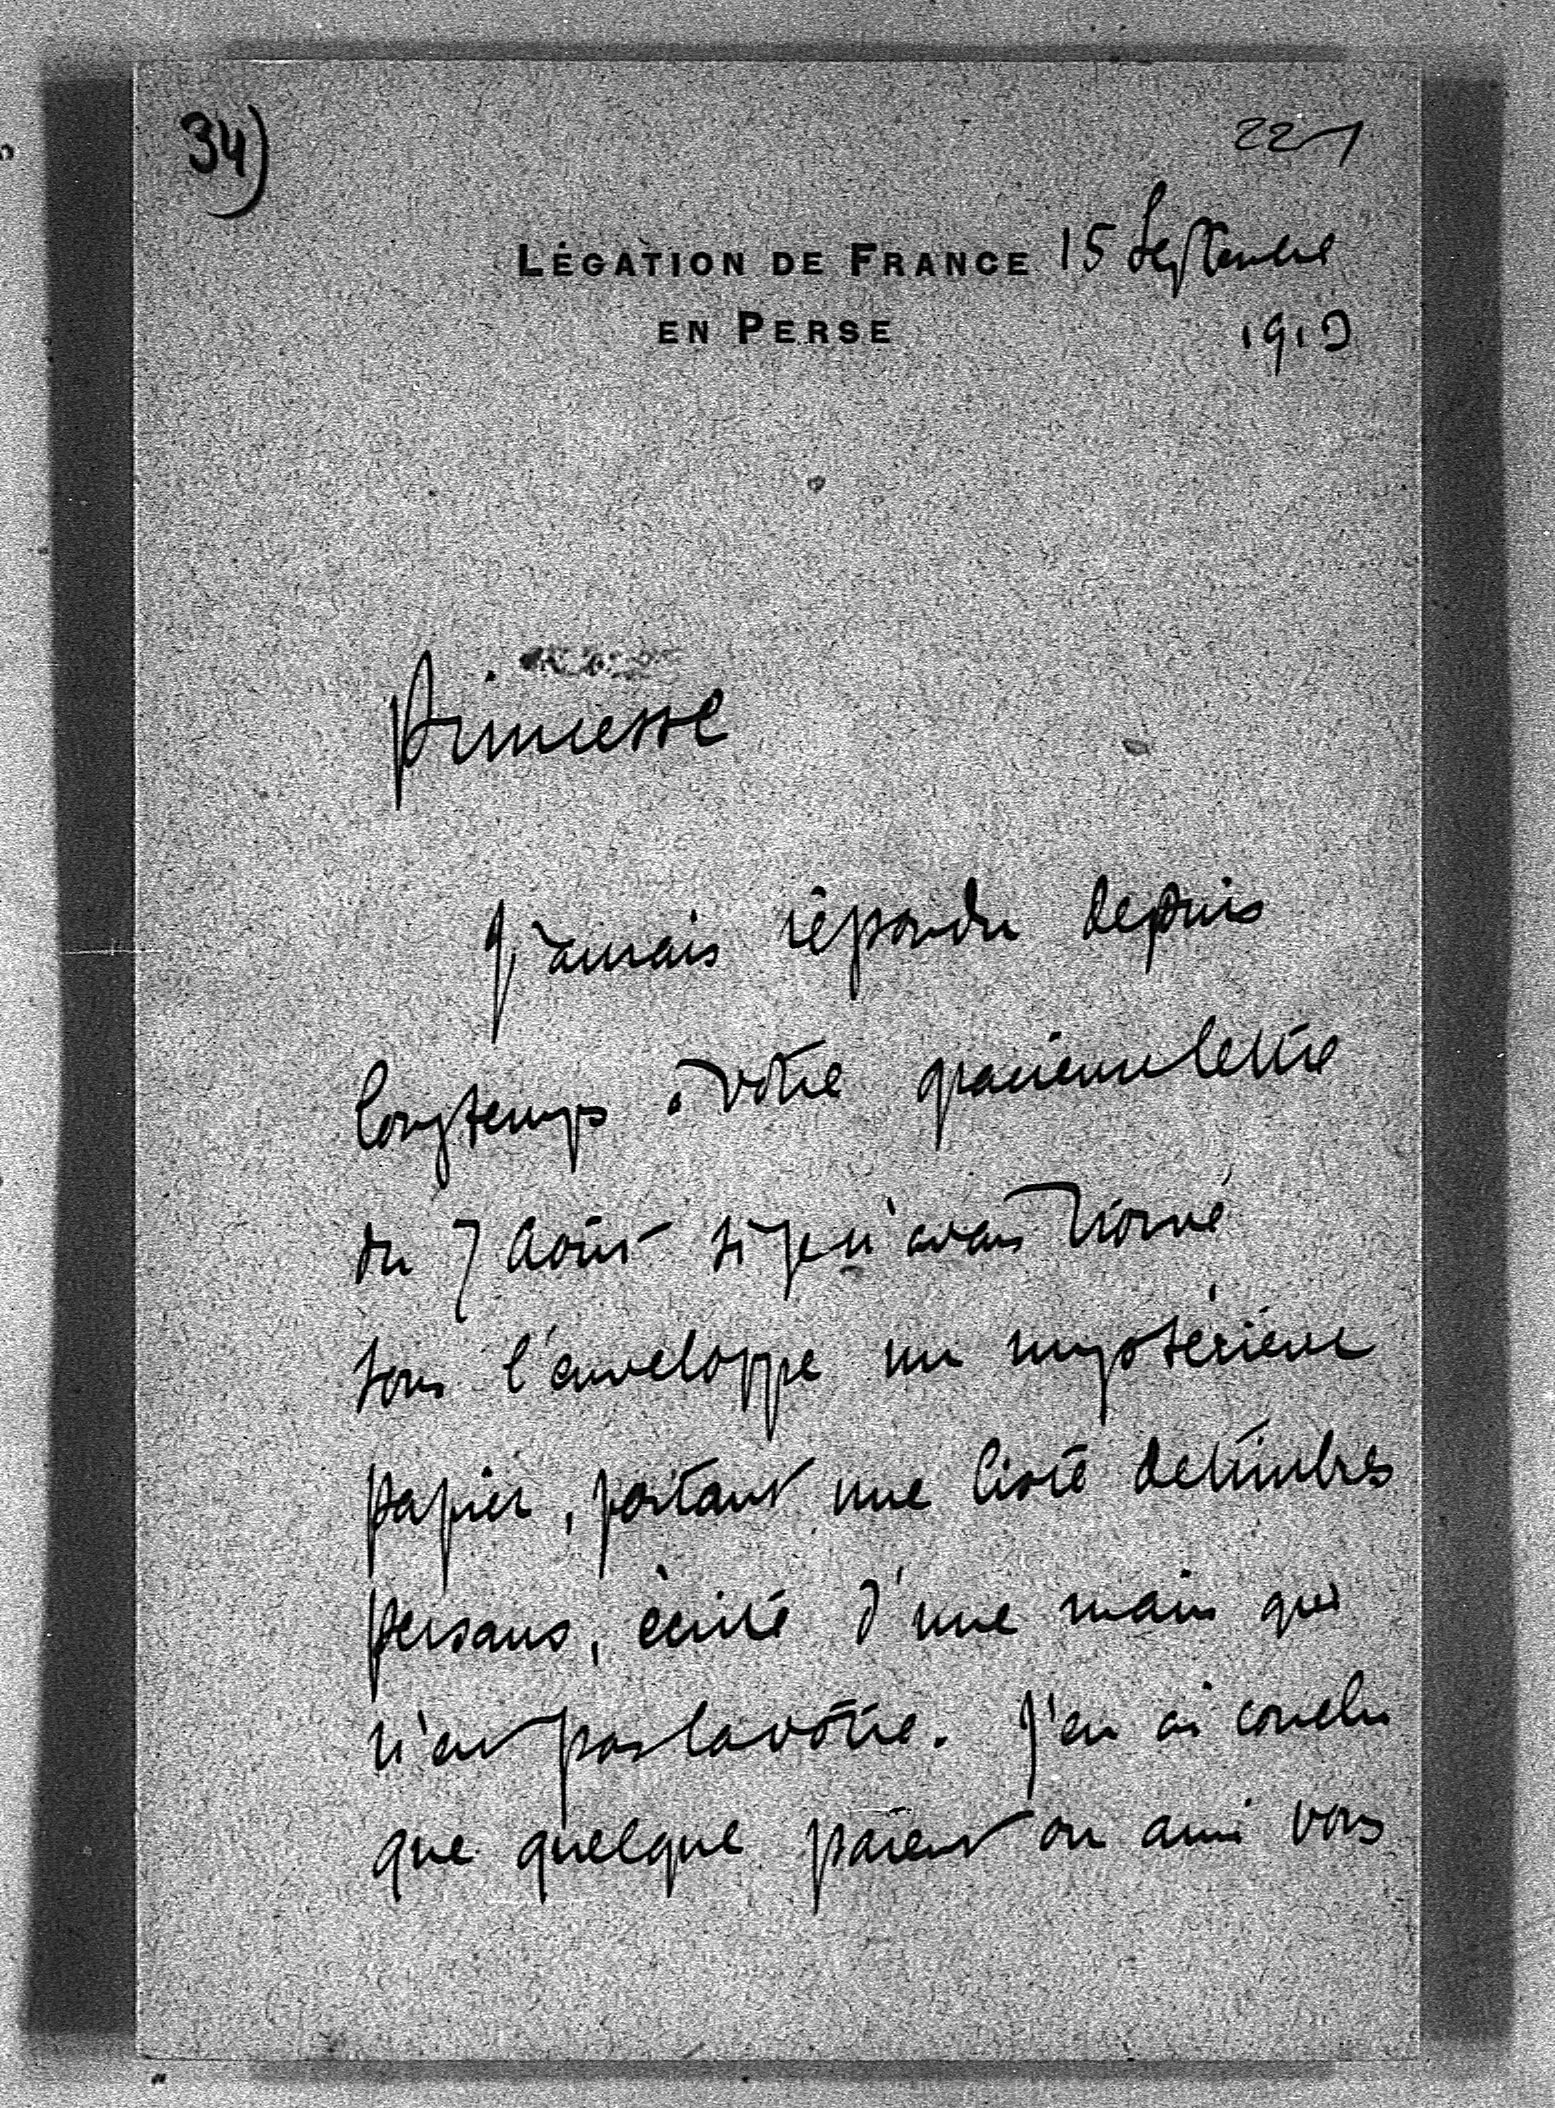 34)
221
LÉGATION DE FRANCE 15 Septembre
EN PERSE 1910
Princesse
J'aurais répondu depuis
longtemps à votre gracieuse lettre
du 7 Août si je n'avais trouvé
sous l'enveloppe un mystérieux
papier, portant une liste de timbres
persans, écrite d'une main qui
n'est pas la vôtre. J'en ai conclu
que quelque parent ou ami vous